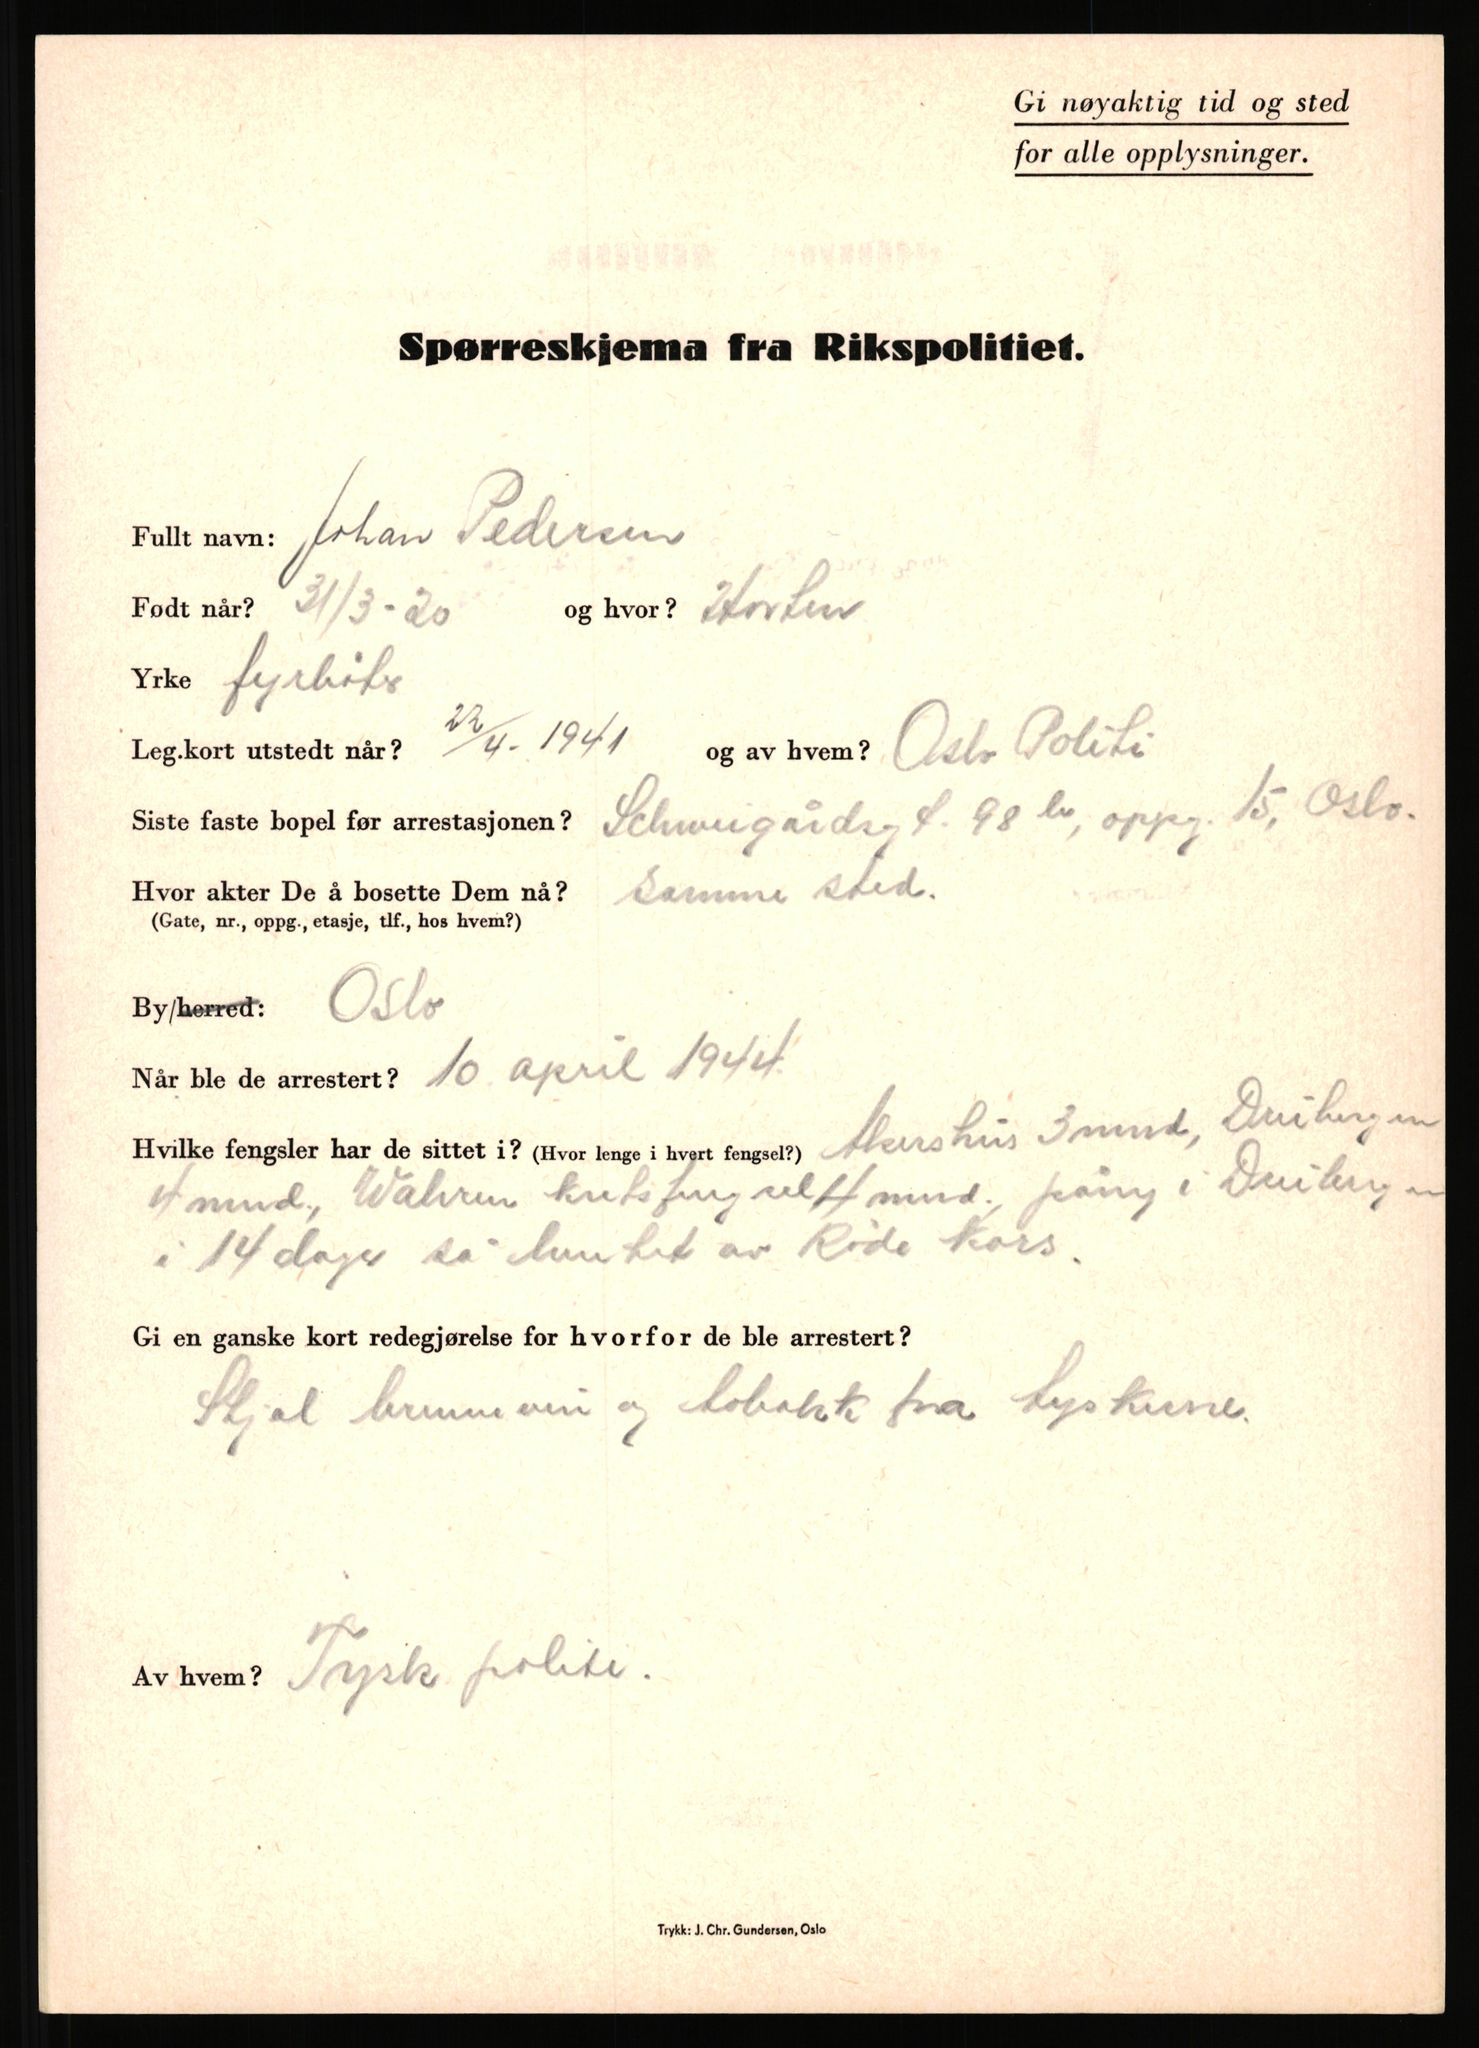 Gi nøyaktig tid og sted
for alle opplysninger.
Spørreskjema fra Rikspolitiet.
Fullt navn: Johan Pedersen
Født når? 31/3-20 og hvor? Horten
Yrke fyrbøter
Leg.kort utstedt når? 22/4-1941 og av hvem? Oslo Politi
Siste faste bopel før arrestasjonen? Schweigårdsgt. 98 b, oppg. 15, Oslo.
Hvor akter De å bosette Dem nå? samme sted.
(Gate, nr., oppg., etasje, tlf., hos hvem?)
By/herred: Oslo
Når ble de arrestert? 10 april 1944.
Hvilke fengsler har de sittet i? (Hvor lenge i hvert fengsel?) Akershus 3 mnd, Dreibergen
4 mnd., kretsfengsel 4 mnd., påny i Dreibergen
i 14 dager så hentet av Røde Kors.
Gi en ganske kort redegjørelse for hvorfor de ble arrestert?
Stjal brennevin og tobakk fra tyskerne.
Av hvem? Tysk politi.
Trykk: J. Chr. Gundersen, Oslo